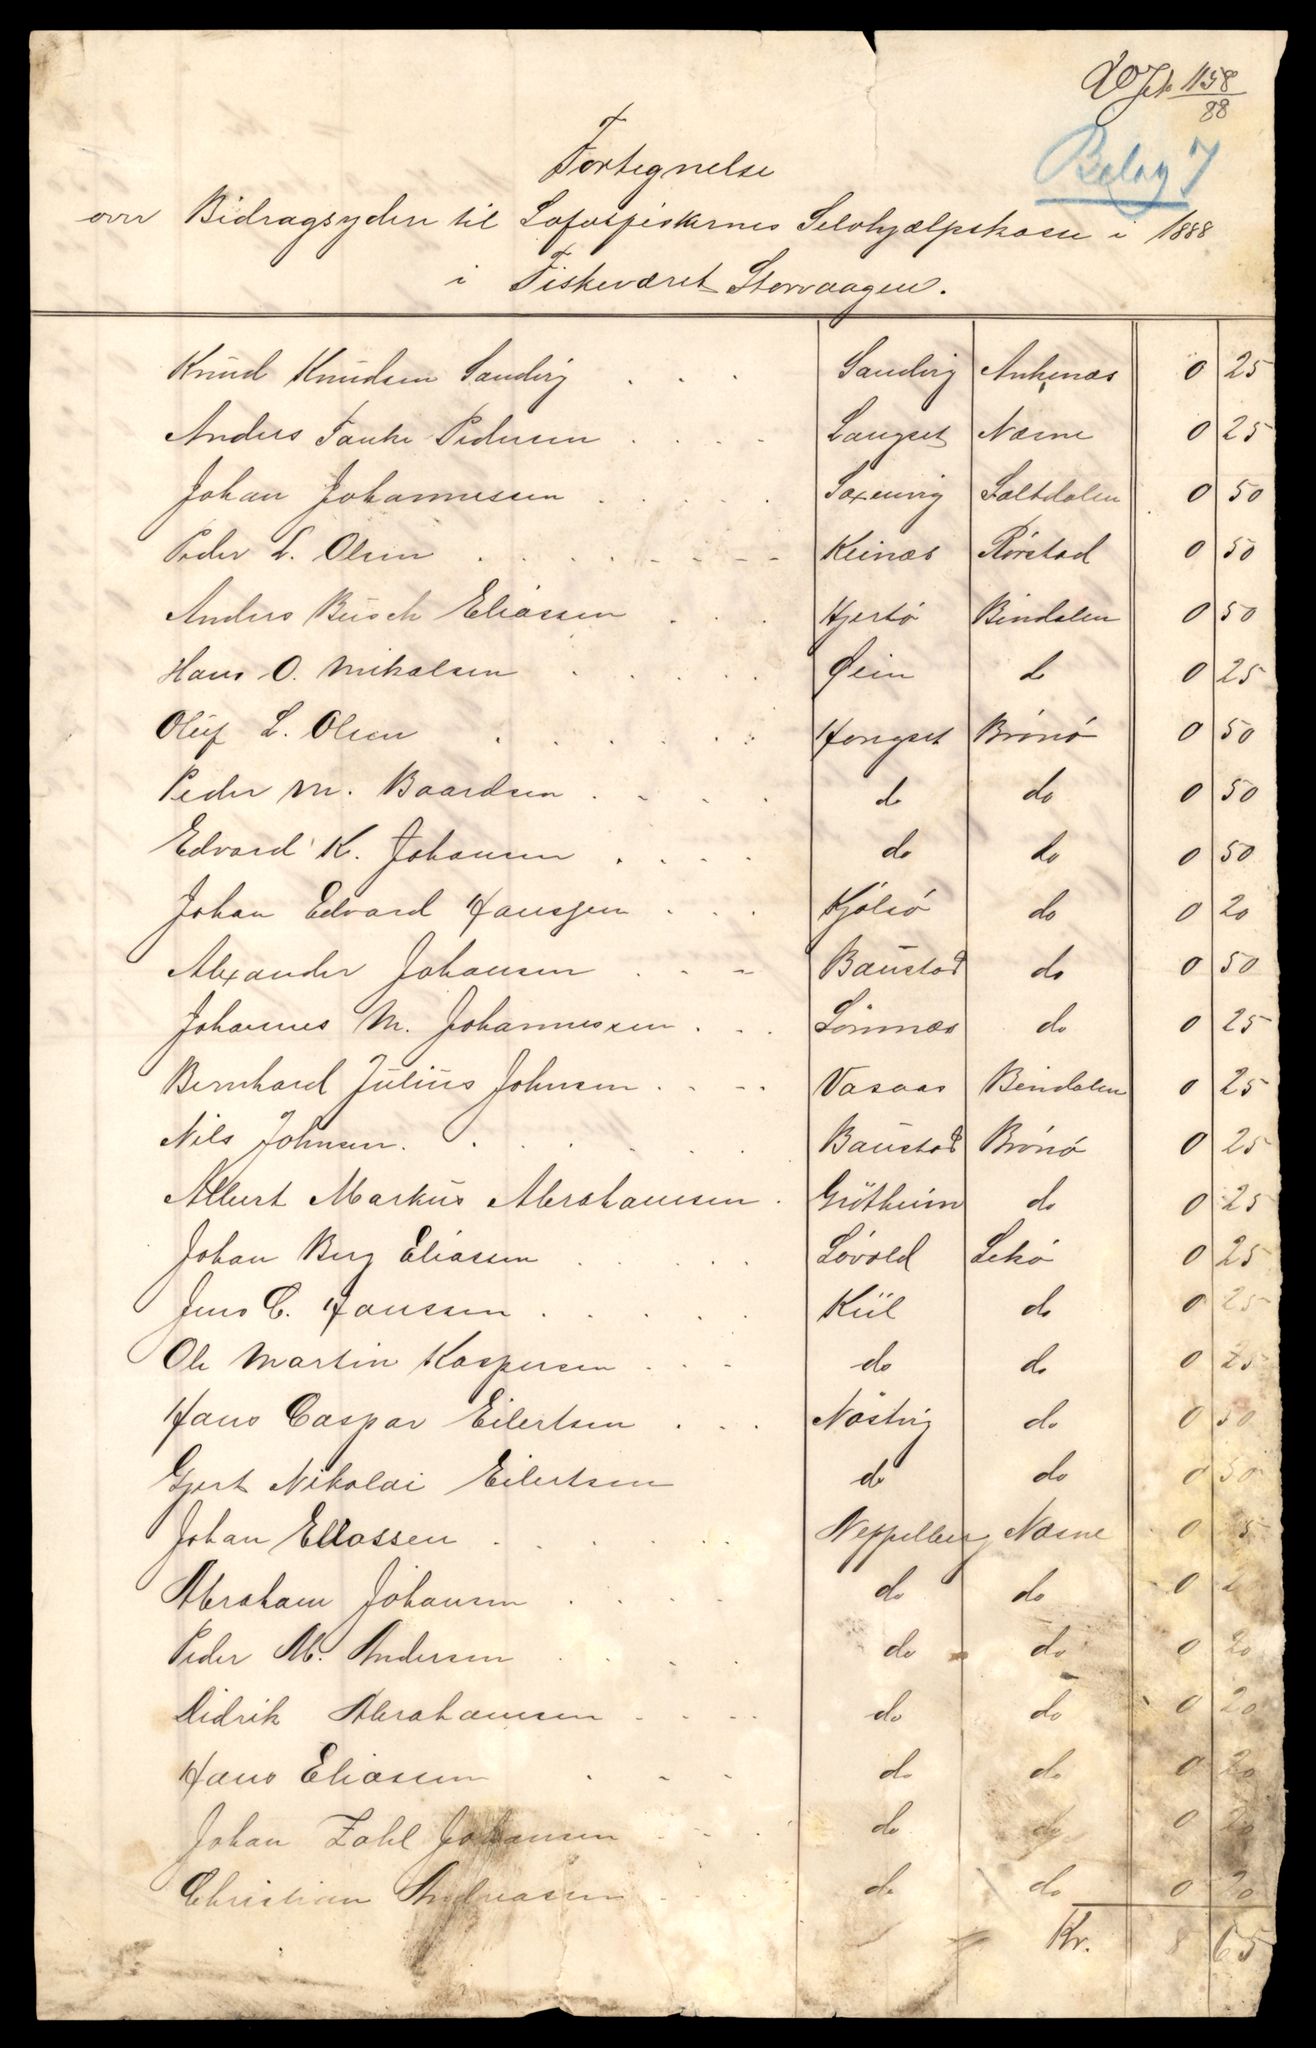 1158
88
Belag 7
Fortegnelse
over Bidragsydere til Lofotfiskernes Selvhjælpskasse i 1888
i Fiskeværet Storvaagen.
Knud Knudsen Sandvig . . . Sandvig Ankenæs 0 25
Anders Fanke Pedersen . . . . Langset Næsne 0 25
Johan Johannessen . . . . . Saxenvig Saltdalen 0 50
Peder L. Olsen . . . . . . . . Keinæs Rørstad 0 50
Anders Busch Eliassen . . . Hjertö Bindalen 0 50
Hans O. Mikalsen . . . . . Øien do 0 25
Oluf L. Olsen . . . . . . Hongset Brönö 0 50
Peder M. Baardsen . . . . do do 0 50
Edvard K. Johansen . . . . do do 0 50
Johan Edvard Hanssen . . . Kjölsö do 0 20
Alexander Johansen . . . Baustad do 0 50
Johannes M. Johannessen . . . Sömnæs do 0 25
Bernhard Julius Johnsen . . . . Vasaas Bindalen 0 25
Nils Johnsen . . . . . . Baustad Brönö 0 25
Albert Markus Abrahamsen . Grötheim do 0 25
Johan Berg Eliassen . . . . . Sövold Lekö 0 25
Jens C. Hanssen . . . . . Kiil do 0 25
Ole Martin Kaspersen . . . do do 0 25
Hans Caspar Eilertsen . . . Nöstvig do 0 50
Gjert Nikolai Eilertsen do do 0 50
Johan Eliassen . . . . . . Neppelberg Næsne 0
Abraham Johansen . . . . do do 0
Peder M. Andersen . . . . do do 0 20
Didrik Abrahamsen . . . . do do 0 20
Hans Eliassen . . . do do 0 20
Johan Zahl Johansen . . . do do 0 20
Christian Andreassen . . . do do 0 20
Kr. 8 65